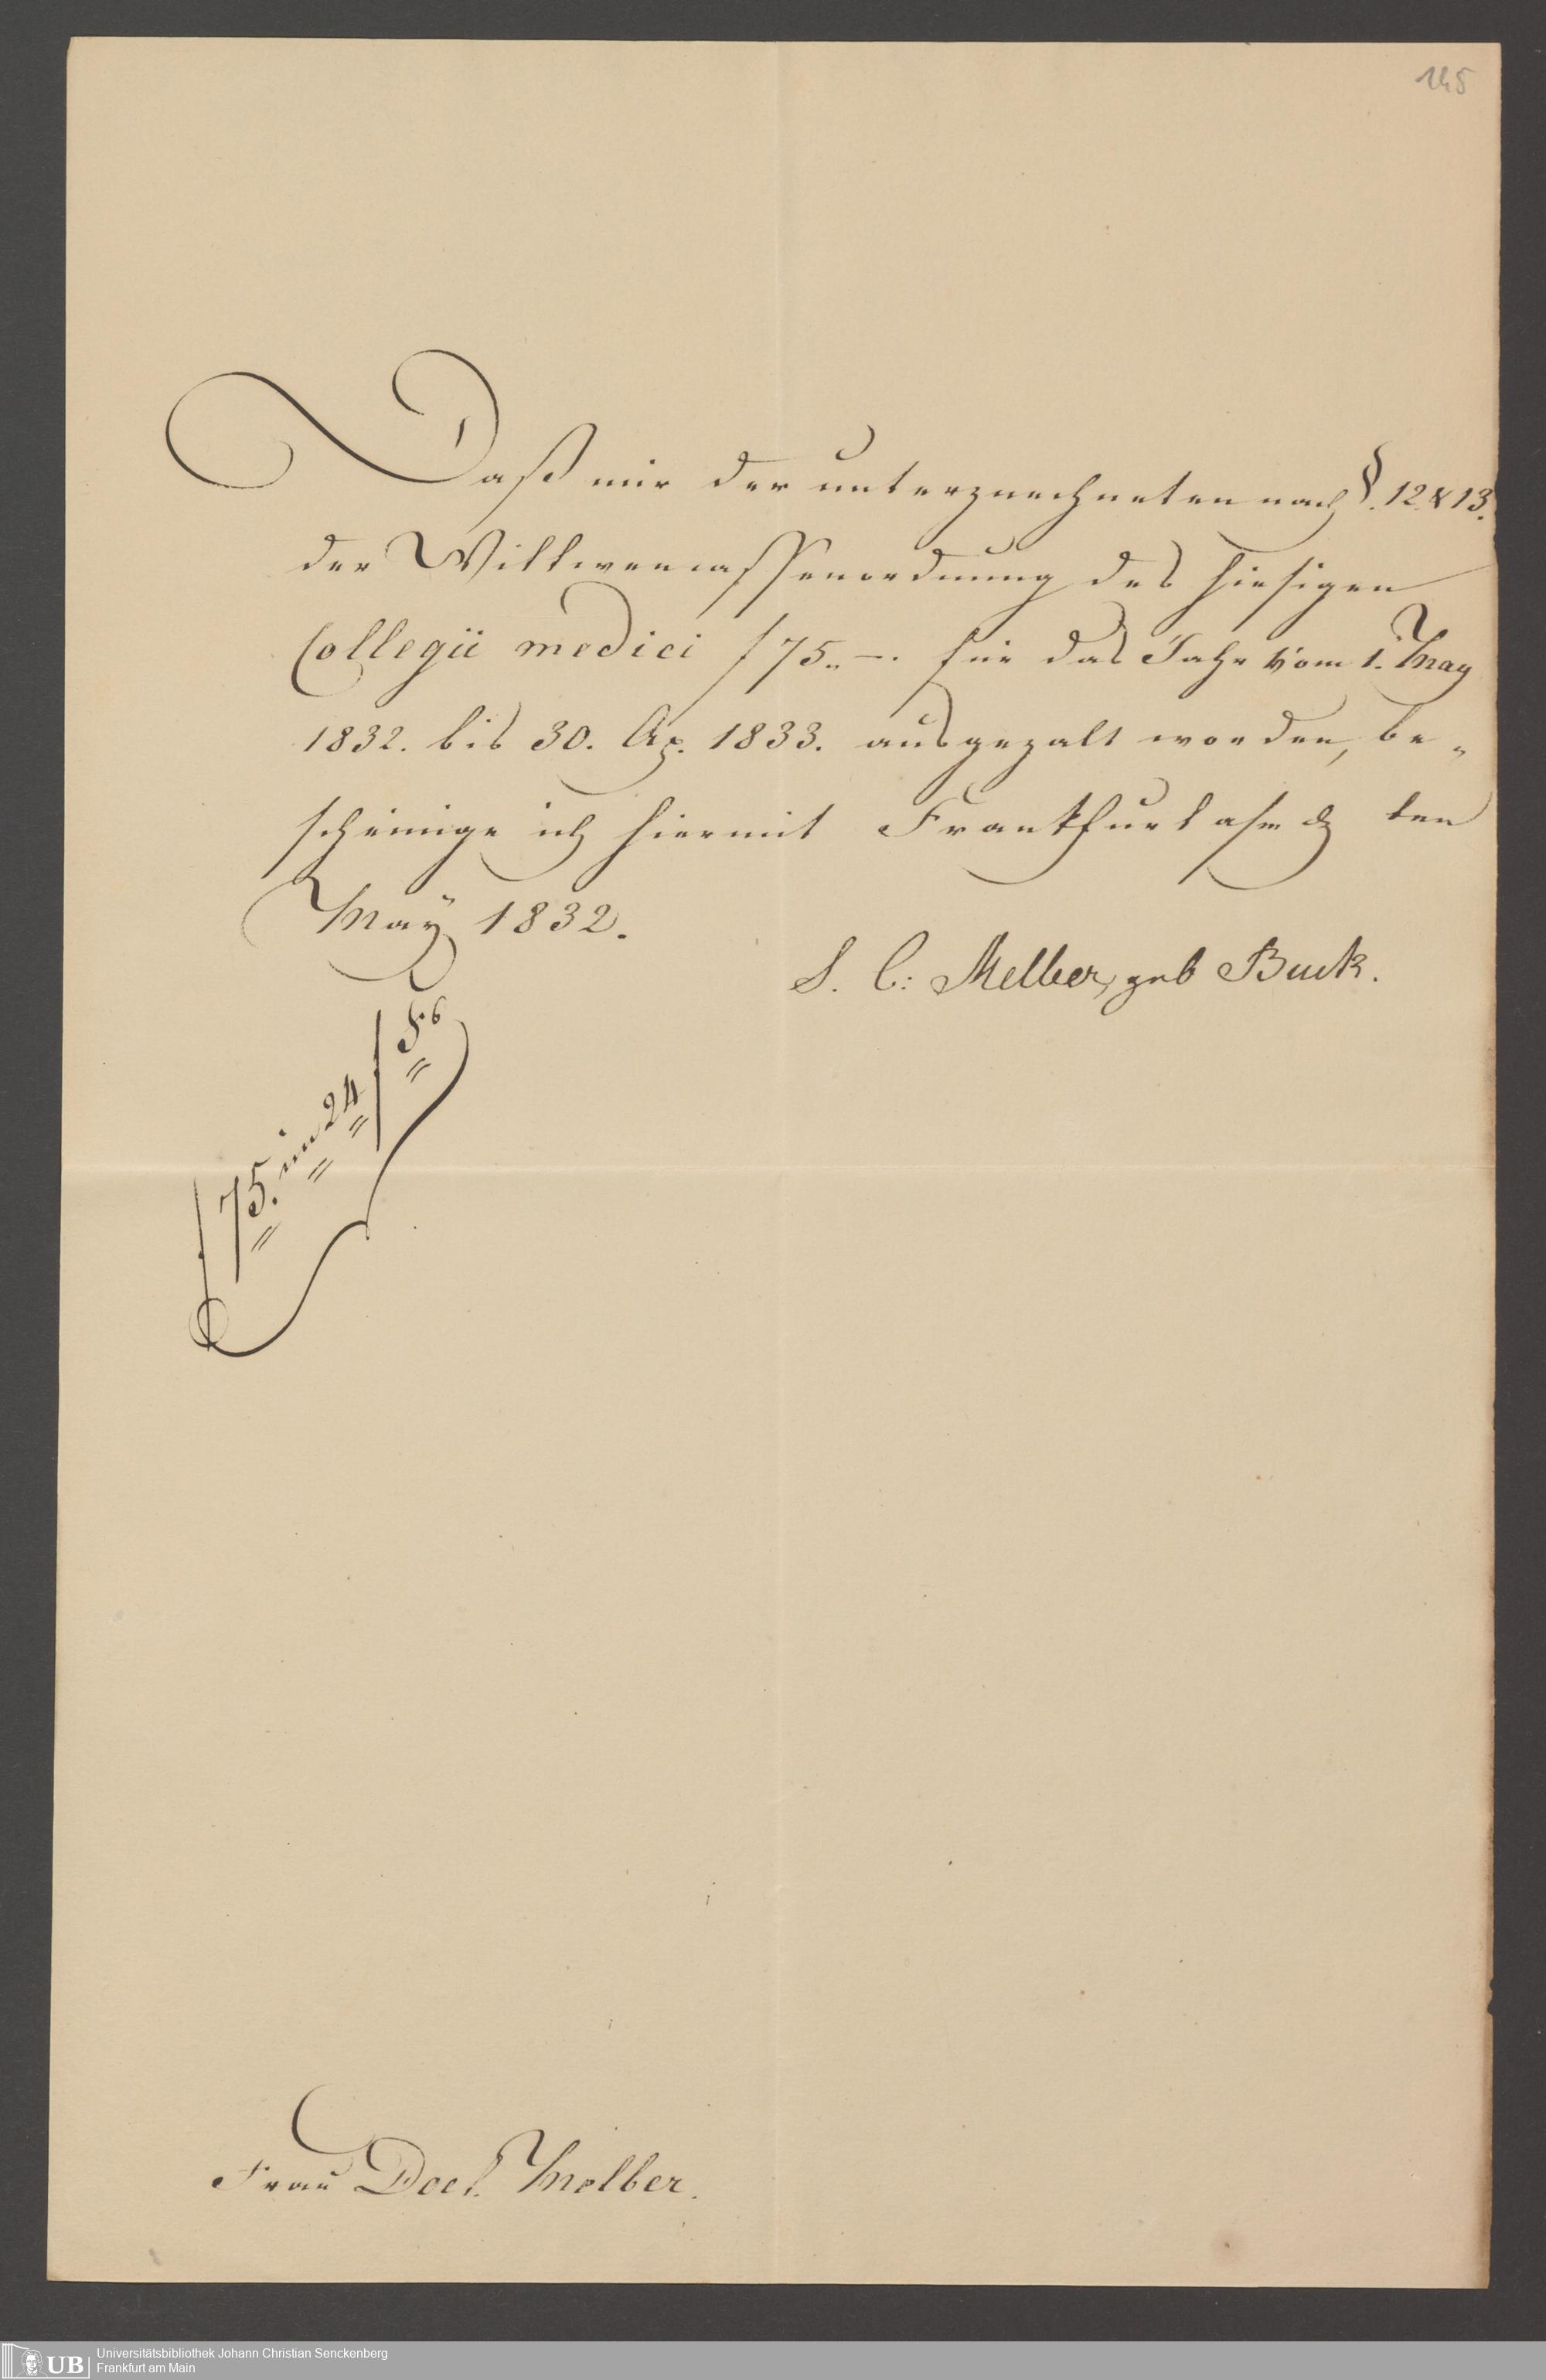 145
Daß mir der unterzeichneten nach §. 12 & 13.
der Wittwencassenordnung des hiesigen
Collegii medici f 75.. —. für das Jahr vom 1. May
1832. bis 30. Ap. 1833. ausgezalt worden, be-
scheinige ich hiermit Frankfurt den
May 1832.
S. C: Melber, geb Buck.
f 75. im 24 f
Frau Doct. Melber.
UB Universitätsbibliothek Johann Christian Senckenberg
Frankfurt am Main